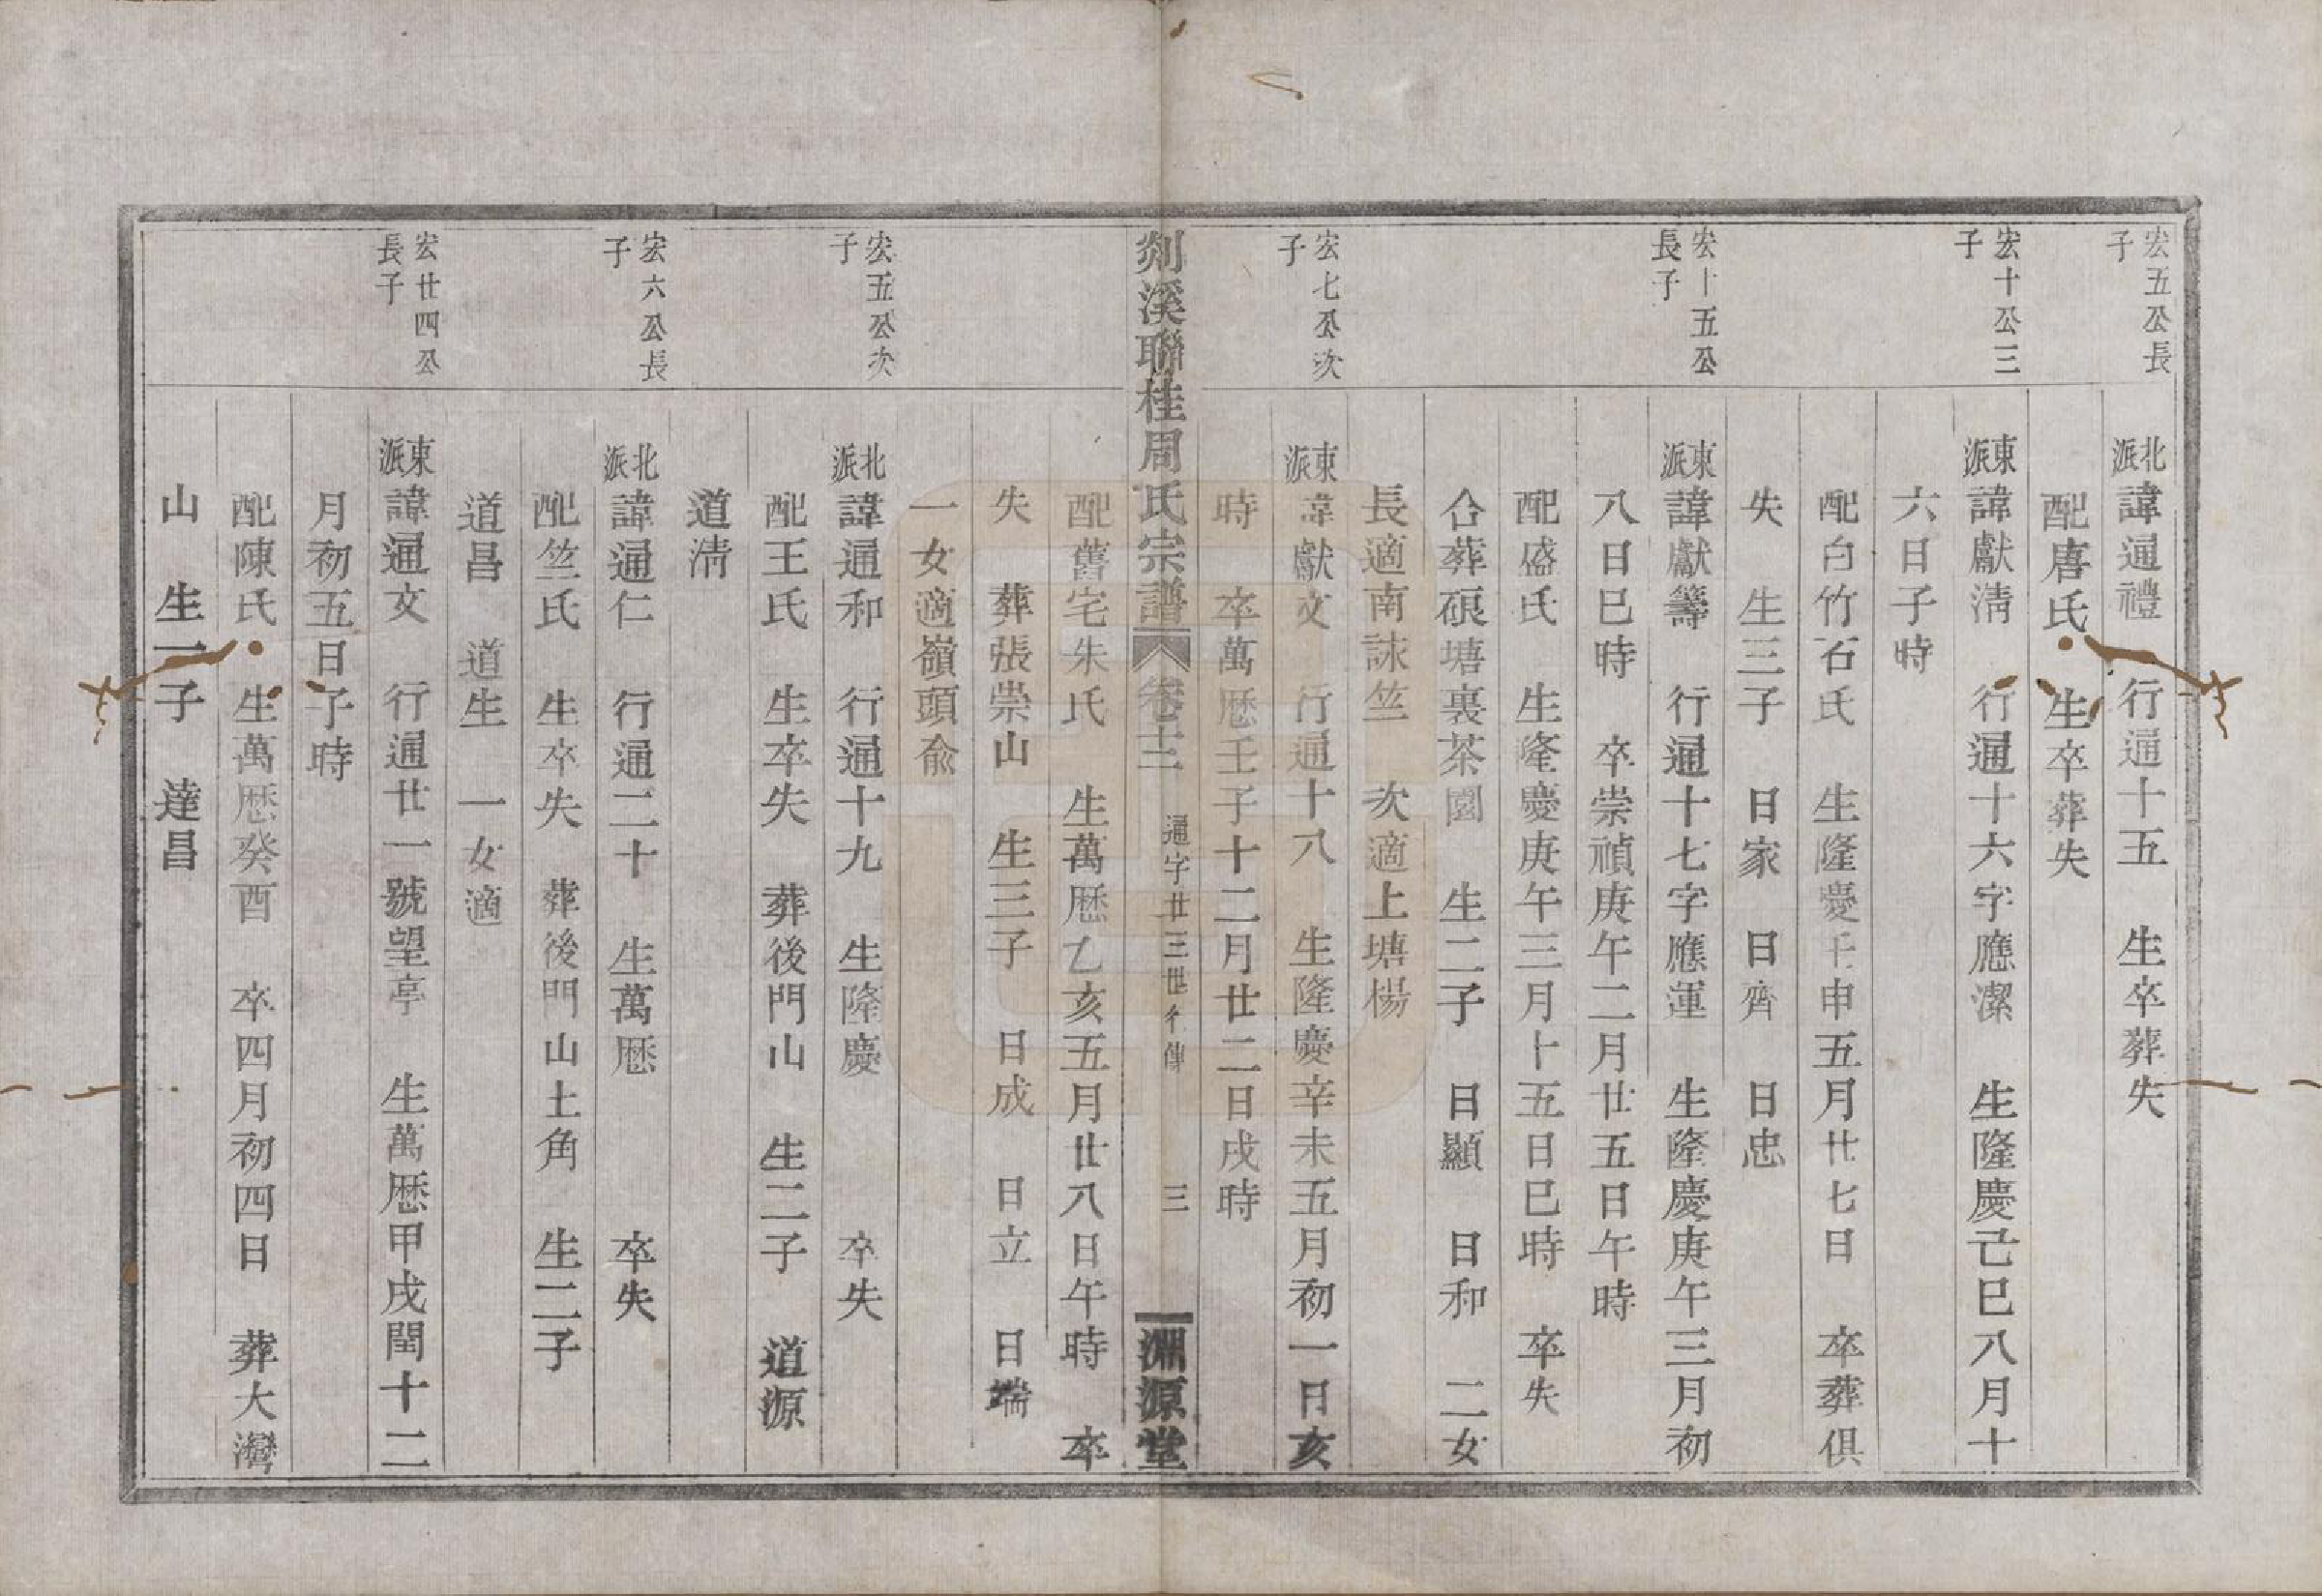 宏五公長
子
北派諱通禮 行通十五 生卒葬失
配唐氏 生卒葬失
宏十公三
子
東派諱獻淸 行通十六字應潔 生隆慶己巳八月十
六日子時
配白竹石氏 生隆慶壬申五月廿七日 卒葬俱
失 生三子 日家 日齊 日忠
宏十五公
長子
東派諱獻籌 行通十七字應運 生隆慶庚午三月初
八日巳時 卒崇禎庚午二月廿五日午時
配盛氏 生隆慶庚午三月十五日巳時 卒失
合葬硍塘裏茶園 生二子 日顯 日和 二女
長適南詠竺 次適上塘楊
宏七公次
子
東派諱獻文 行通十八 生隆慶辛未五月初一日亥
時 卒萬厯壬子十二月廿二日戌時
剡溪聯桂周氏宗譜 卷十二 通字廿三世行傳 三 淵源堂
配舊宅朱氏 生萬厯乙亥五月廿八日午時 卒
失 葬張崇山 生三子 日成 日立 日端
一女適嶺頭兪
宏五公次
子
北派諱通和 行通十九 生隆慶 卒失
配王氏 生卒失 葬後門山 生二子 道源
道淸
宏六公長
子
北派諱通仁 行通二十 生萬厯 卒失
配竺氏 生卒失 葬後門山土角 生二子
道昌 道生 一女適
宏廿四公
長子
東派諱通文 行通廿一號望亭 生萬厯甲戌閏十二
月初五日子時
配陳氏 生萬厯癸酉 卒四月初四日 葬大灣
山 生一子 達昌